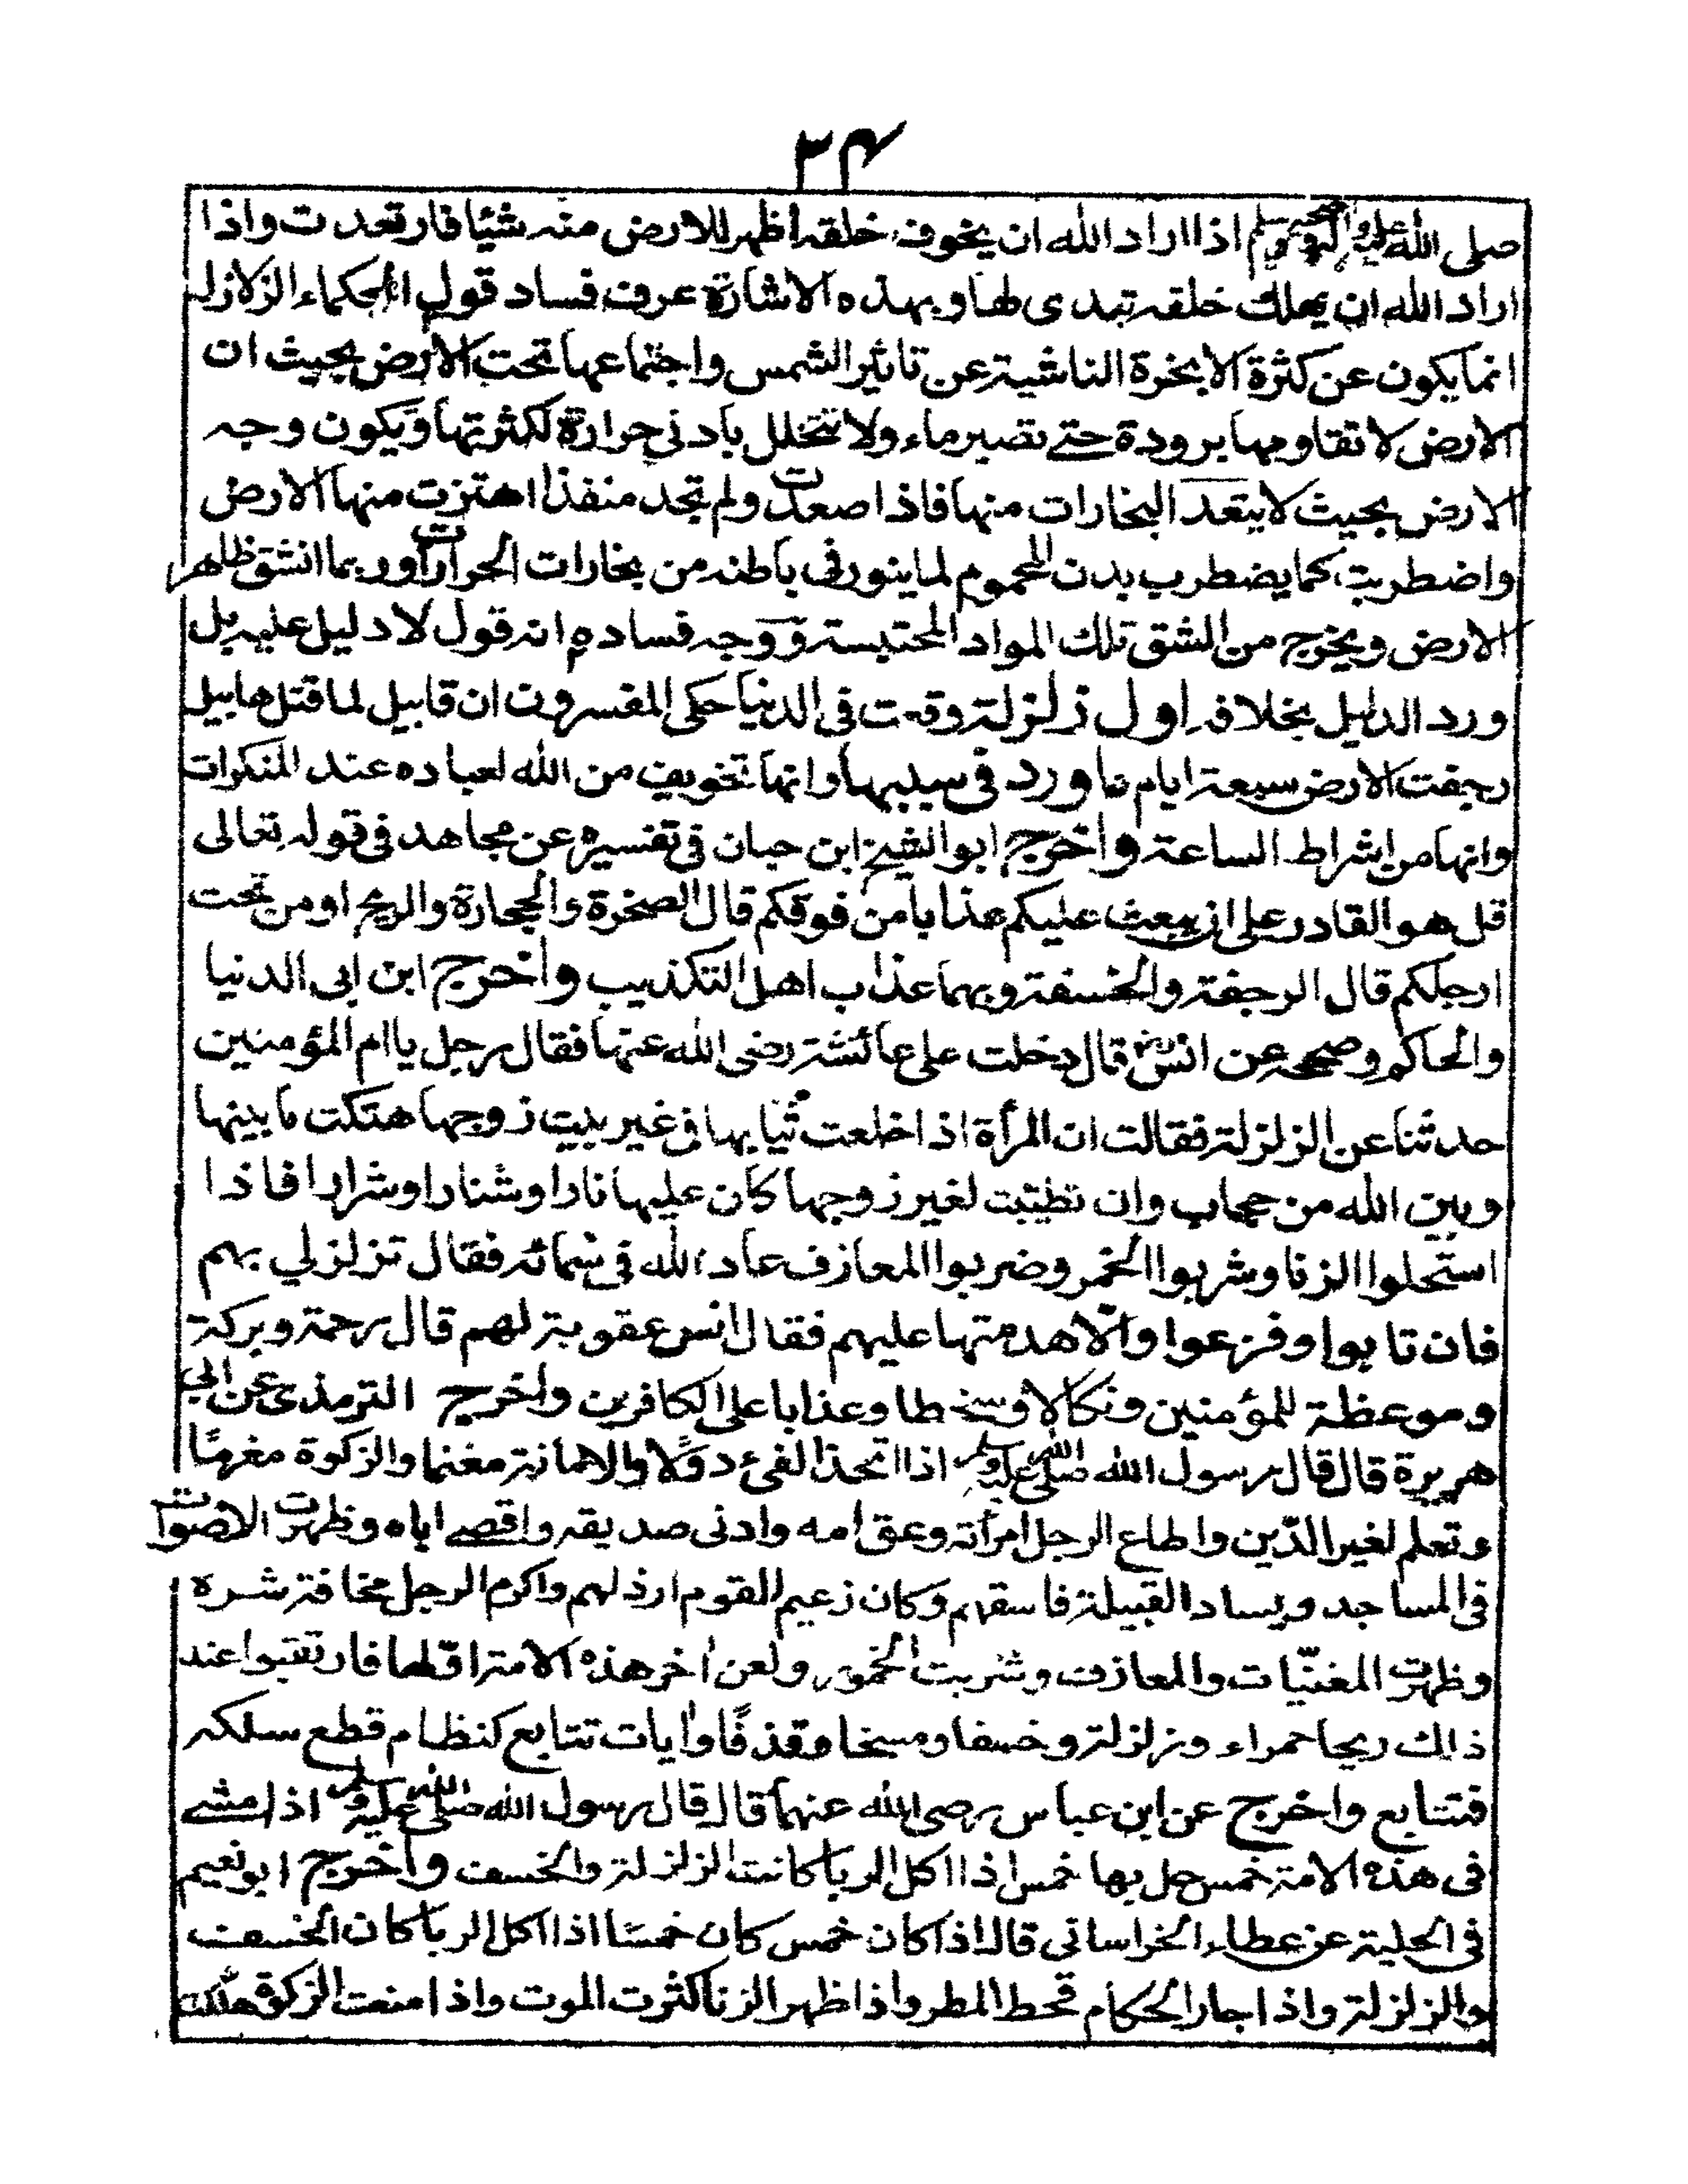 ٣٤
صلى الله عليه وآله وصحبه وسلم اذا اراد الله ان يخوف خلقه اظهر للارض منه شيئا فارتعدت واذا
اراد الله ان يهلك خلقه تبدى لها وبهذه الاشارة عرف فساد قول الحكماء الزلازل
انما يكون عن كثرة الابخرة الناشية عن تاثير الشمس واجتماعها تحت الارض بحيث ان
الارض لا تقاومها برودة حتے تصير ماء ولا تتحلل بادنى حرارة لكثرتها ويكون وجه
الارض بحيث لا يتعد البخارات منها فاذا صعدت ولم تجد منفذا اهتزت منها الارض
واضطربت كما يضطرب بدن المحموم لما يثور فى باطنه من بخارات الحرارات وربما انشق ظاهر
الارض ويخرج من الشق تلك المواد المحتبسة ووجه فساده انه قول لا دليل عليه بل
ورد الدليل بخلافه اول زلزلة وقعت فى الدنيا حكى المفسرون ان قابيل لما قتل هابيل
رجفت الارض سبعة ايام ما ورد فى سببها وانها تخويف من الله لعباده عند المنكرات
وانها من اشراط الساعة واخرج ابو الشيخ ابن حبان فى تفسيره عن مجاهد فى قوله تعالى
قل هو القادر على ان يبعث عليكم عذابا من فوقكم قال الصخرة والحجارة والريح او من تحت
ارجلكم قال الرجفة والخسفة وبهما عذاب اهل التكذيب واخرج ابن ابى الدنيا
والحاكم وصححه عن انس رض قال دخلت على عائشة رضى الله عنها فقال رجل يا ام المؤمنين
حدثنا عن الزلزلة فقالت ان المرأة اذا خلعت ثيابها فى غير بيت زوجها هتكت ما بينها
وبين الله من حجاب وان تطيبت لغير زوجها كان عليها نارا وشنارا وشرابا فاذا
استحلوا الزنا وشربوا الخمر وضربوا المعازف عاد الله فى سمائه فقال تزلزلي بهم
فان تابوا وفزعوا والّا هدمتها عليهم فقال انس عقوبة لهم قال رحمة وبركة
وموعظة للمؤمنين ونكالا وسخطا وعذابا على الكافرين واخرج الترمذى عن ابى
هريرة قال قال رسول الله صلى الله عليه وسلم اذا اتخذ الفئ دولًا والامانة مغنما والزكوة مغرمًا
وتعلم لغير الدّين واطاع الرجل امرأته وعق امه وادنى صديقه واقصے اباه وظهرت الاصوات
فى المساجد ويساد القبيلة فاسقهم وكان زعيم القوم ارذلهم واكرم الرجل مخافة شره
وظهرت المغنّيات والمعازف وشربت الخمور ولعن اخر هذه الامة اوّلها فارتقبوا عند
ذالك ريحا حمراء وزلزلة وخسفا ومسخا وقذفًا وايات تتابع كنظام قطع سلكه
فتتابع واخرج عن ابن عباس رضى الله عنهما قال قال رسول الله صلى الله عليه وسلم اذا مشے
فى هذه الامة خمس حل بها خمس اذا اكل الربا كانت الزلزلة والخسف واخرج ابو نعيم
فى الحلية عن عطاء الخراسانى قال اذا كان خمس كان خمسًا اذا اكل الربا كان الخسف
والزلزلة واذا جار الحكام قحط المطر واذا ظهر الزنا كثرت الموت واذا منعت الزكوة هلكت